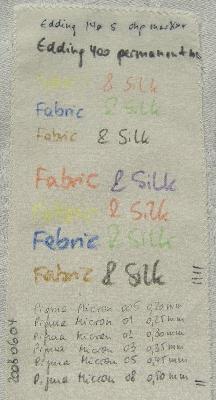 Edding 140 S ohp marker
Edding 400 permanent
Fabric & Silk
Fabric & Silk
Fabric & Silk
Fabric & Silk
Fabric & Silk
Fabric & Silk
Fabric & Silk
Pigma Micron 005 0,20 mm
Pigma Micron 01 0,25 mm
Pigma Micron 02 0,30 mm
Pigma Micron 03 0,35 mm
Pigma Micron 05 0,45 mm
Pigma Micron 08 0,50 mm
20080604